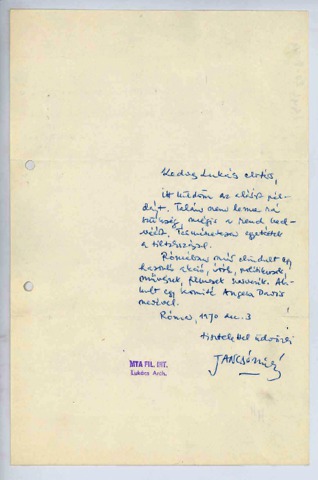 Kedves Lukács elvtárs,
itt küldöm az aláírt pél-
dányt. Talán nem lenne rá
szükség, mégis a rend ked-
véért. Természetesen egyetértek
a tiltakozással.
Rómában már elindult egy
hasonló akció, írók, politikusok,
művészek, filmesek szervezik. Ala-
kult egy komité Angela Davis
nevével.
Róma, 1970 dec. 3
tisztelettel üdvözli
JANCSÓ
MTA FIL. INT.
Lukács Arch.